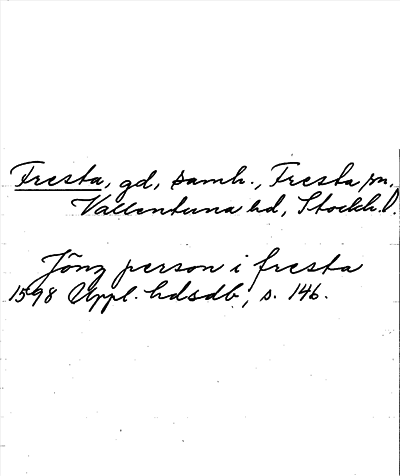 Fresta, gd, samh., Fresta sn,
Vallentuna hd, Stockh. l.
Jönz person i fresta
1598 Uppl. hdsdb, s. 146.